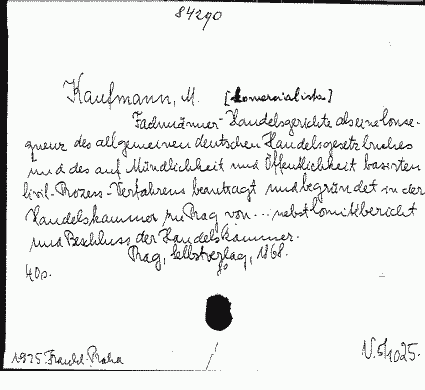 84290
Kaufmann, M. [komercialista]
Fachmänner-Handelsgerichte als eine Conse-
quenz des allgemeinen deutschen Handelsgesetzbuches
und des auf Mündlichkeit und Öffentlichkeit basirten
Civil-Prozess-Verfahrens beantragt und begründet in der
Handelskammer zu Prag von... nebst Comitébericht
und Beschluss der Handelskammer.
Prag, Selbstverlag, 1868.
8°
40 s.
1925. Prada. Praha
V. 5/1025.